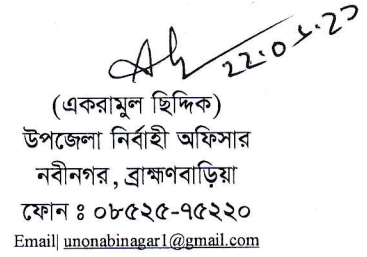 (একরামুল ছিদ্দিক)
উপজেলা নির্বাহী অফিসার
নবীনগর, ব্রাহ্মণবাড়িয়া
ফোন ঃ ০৮৫২৫-৭৫২২০
Email| unonabinagar1@gmail.com